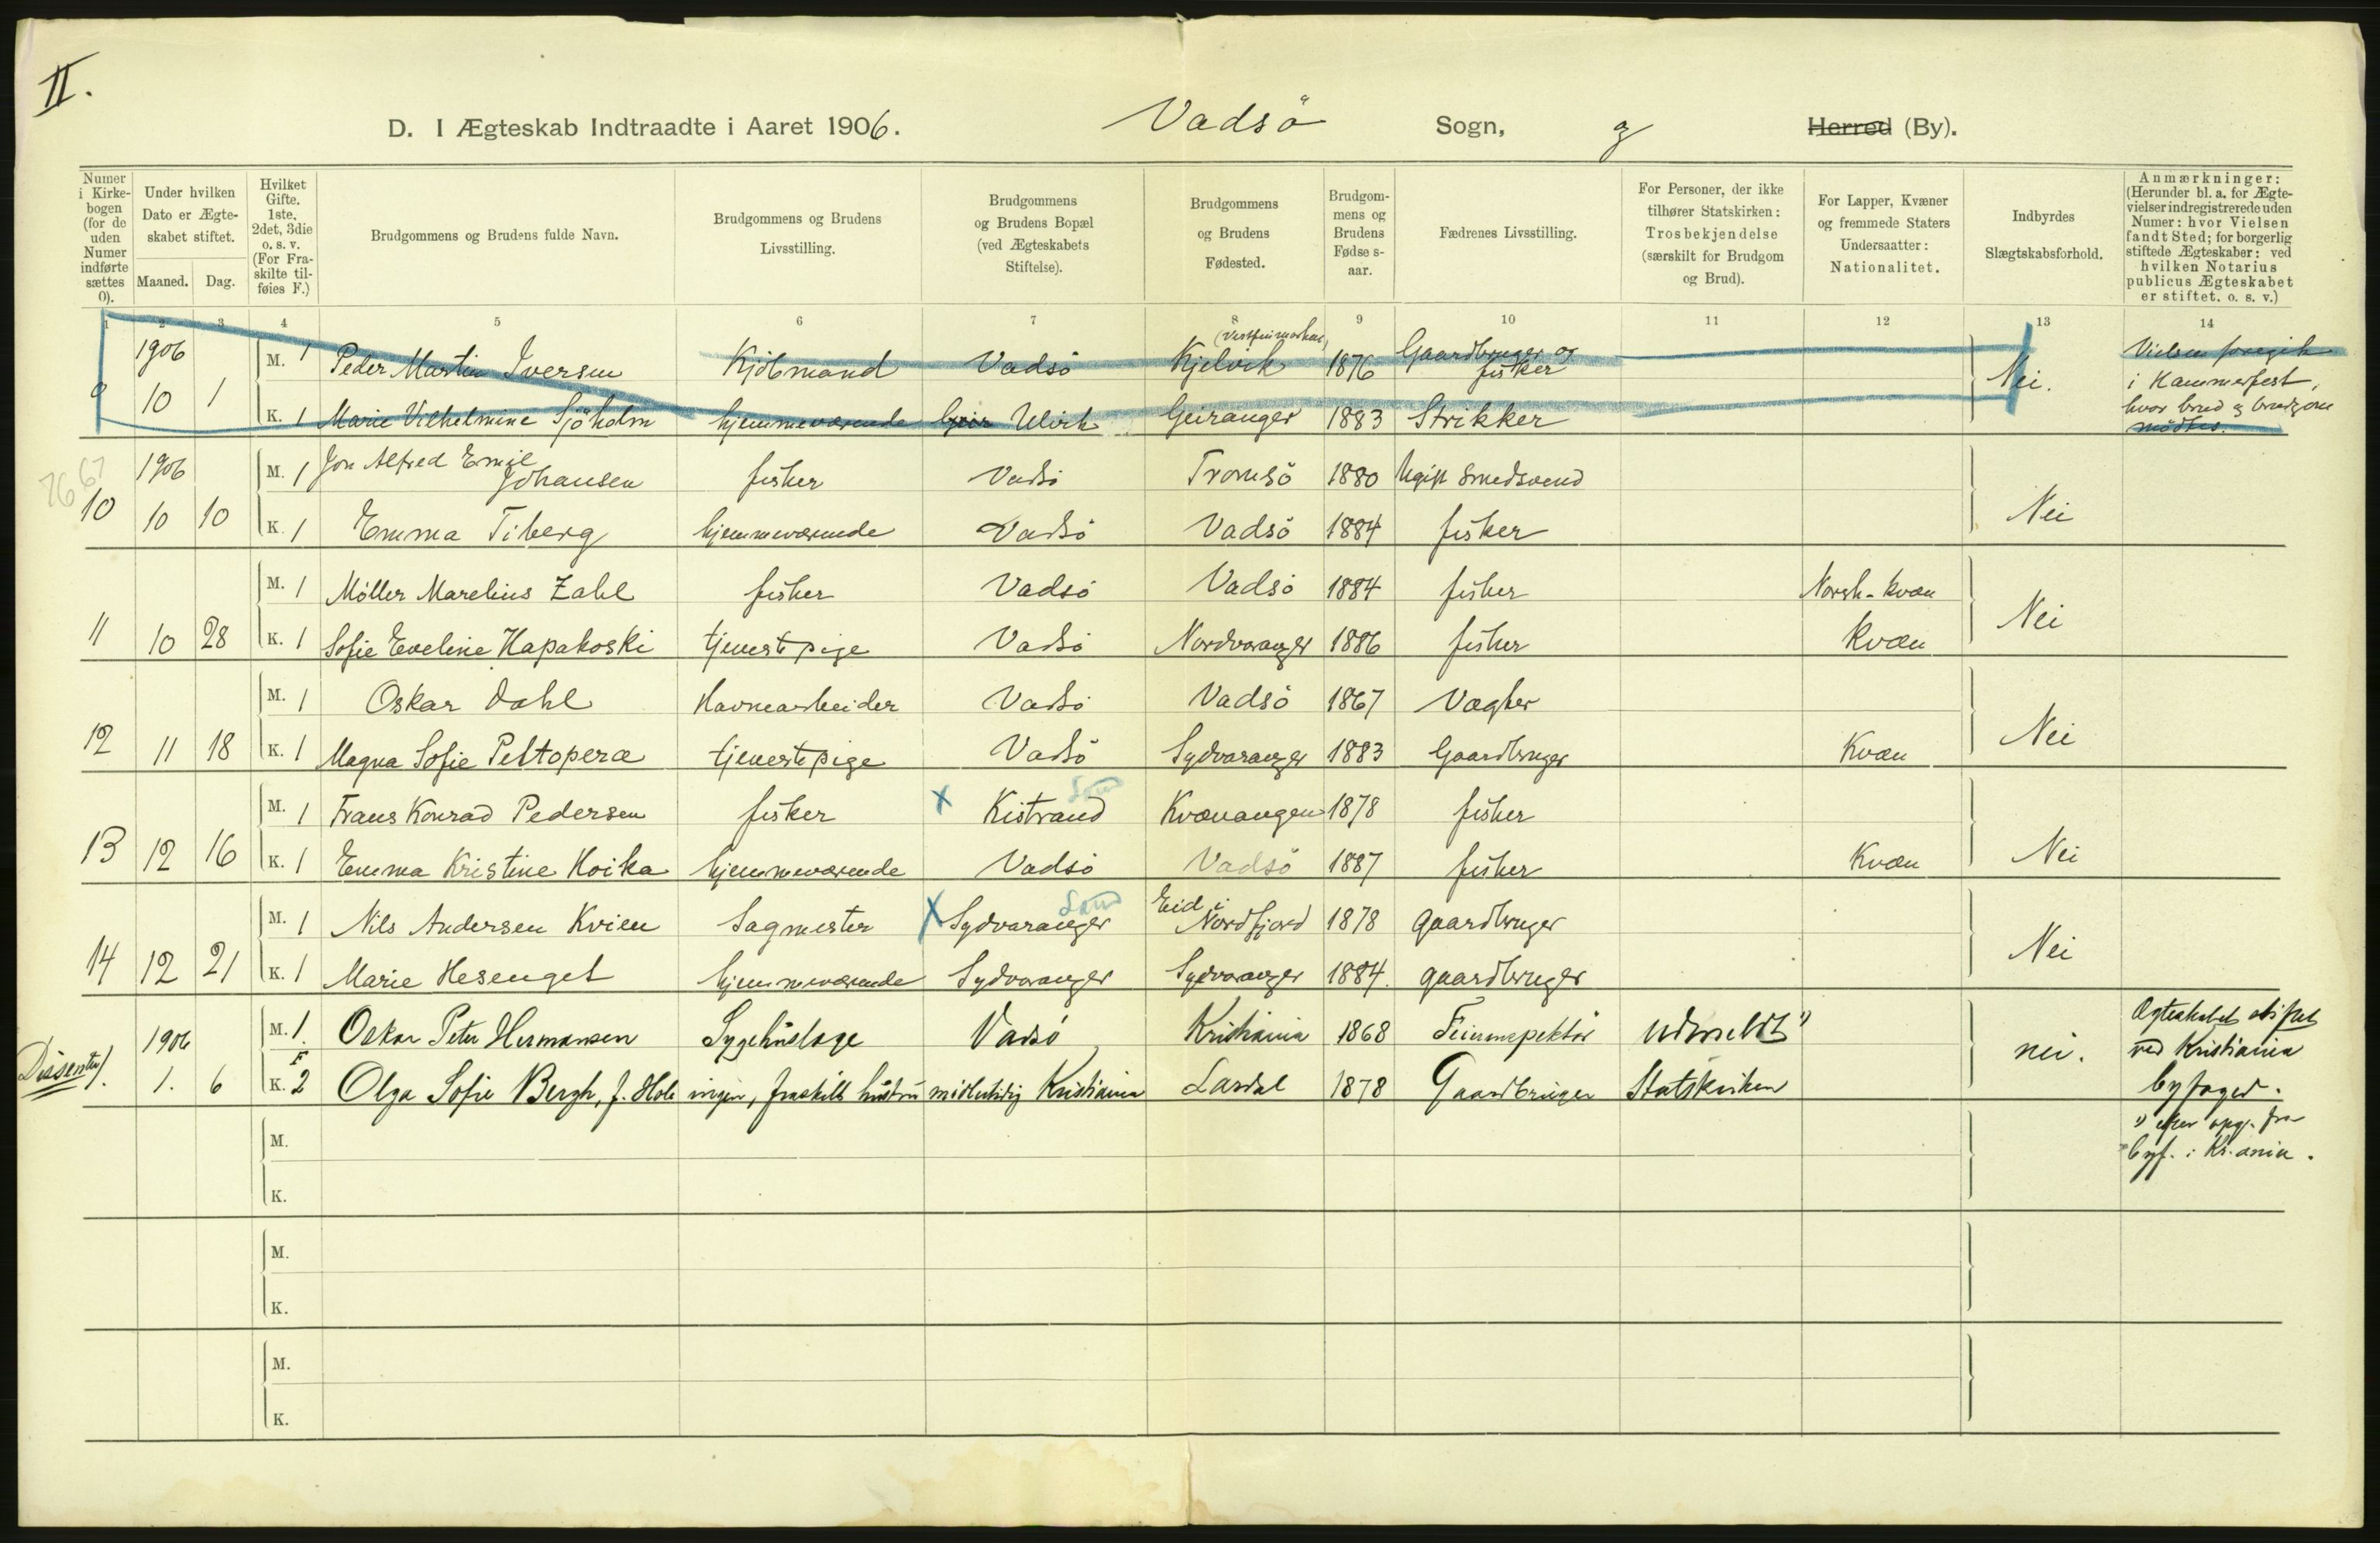 II.
D. I Ægteskab Indtraadte i Aaret 1906. Vadsö Sogn, Herred (By).
Numer i Kirkebogen (for de uden Numer indførte sættes 0).
Under hvilken Dato er Ægteskabet stiftet.
Maaned. Dag.
Hvilket Gifte. 1ste, 2det, 3die o. s. v. (For Fraskilte tilføies F.)
Brudgommens og Brudens fulde Navn.
Brudgommens og Brudens Livsstilling.
Brudgommens og Brudens Bopæl (ved Ægteskabets Stiftelse).
Brudgommens og Brudens Fødested.
Brudgommens og Brudens Fødselsaar.
Fædrenes Livsstilling.
For Personer, der ikke tilhører Statskirken: Trosbekjendelse (særskilt for Brudgom og Brud).
For Lapper, Kvæner og fremmede Staters Undersaatter: Nationalitet.
Indbyrdes Slægtskabsforhold.
Anmærkninger: (Herunder bl. a. for Ægtevielser indregistrerede uden Numer: hvor Vielsen fandt Sted; for borgerlig stiftede Ægteskaber: ved hvilken Notarius publicus Ægteskabet er stiftet. o. s. v.)
1 2 3 4 5 6 7 8 9 10 11 12 13 14
1906 M. 1 Peder Martin Iversen Kjöbmand Vadsö Kjelvik (Vestfinmarken) 1876 Gaardbruger og fisker Nei. Vielsen foregik
9 10 1 K. 1 Marie Vilhelmine Sjöholm hjemmeværende Geiranger 1883 Strikker i Hammerfest, hvor brud og brudgom mödtes.
1906 M. 1 Jon Alfred Emil Johansen fisker Vadsö Tromsö 1880 Ugift Smedsvend
10 10 10 K. 1 Emma Tiberg hjemmeværende Vadsö Vadsö 1884 fisker Nei
M. 1 Möller Marelius Zahl fisker Vadsö Vadsö 1884 fisker Norsk-kvæn
11 10 28 K. 1 Sofie Eveline Hapakoski tjenestepige Vadsö Nordvaranger 1886 fisker Kvæn Nei
M. 1 Oskar Dahl Havnearbeider Vadsö Vadsö 1867 Vægter
12 11 18 K. 1 Magna Sofie Peltopera tjenestepige Vadsö Sydvaranger 1883 Gaardbruger Kvæn Nei
M. 1 Frans Konrad Pedersen fisker X Kistrand Land Kvænangen 1878 fisker
13 12 16 K. 1 Emma Kristine Hoika hjemmeværende Vadsö Vadsö 1887 fisker Kvæn Nei
M. 1 Nils Andersen Kvien Sagmester X Sydvaranger Land Eid i Nordfjord 1878 gaardbruger
14 12 21 K. 1 Marie Hesenget hjemmeværende Sydvaranger Sydvaranger 1884. gaardbruger Nei
1906 M. 1. Oskar Peter Hermansen Sygehuslæge Vadsö Kristiania 1868 Udmeldt 1) Ægteskabet stiftet
Dissenter 1. 1. 6 K. F 2 Olga Sofie Bergh, f. Hole ingen, fraskilt hustru midlertidig Kristiania Lardal 1878 Gaardbruger Statskirken nei. ved Kristiania byfoged.
M. 1) efter opg. fra
K. byf. i Kr.ania.
M.
K.
M.
K.